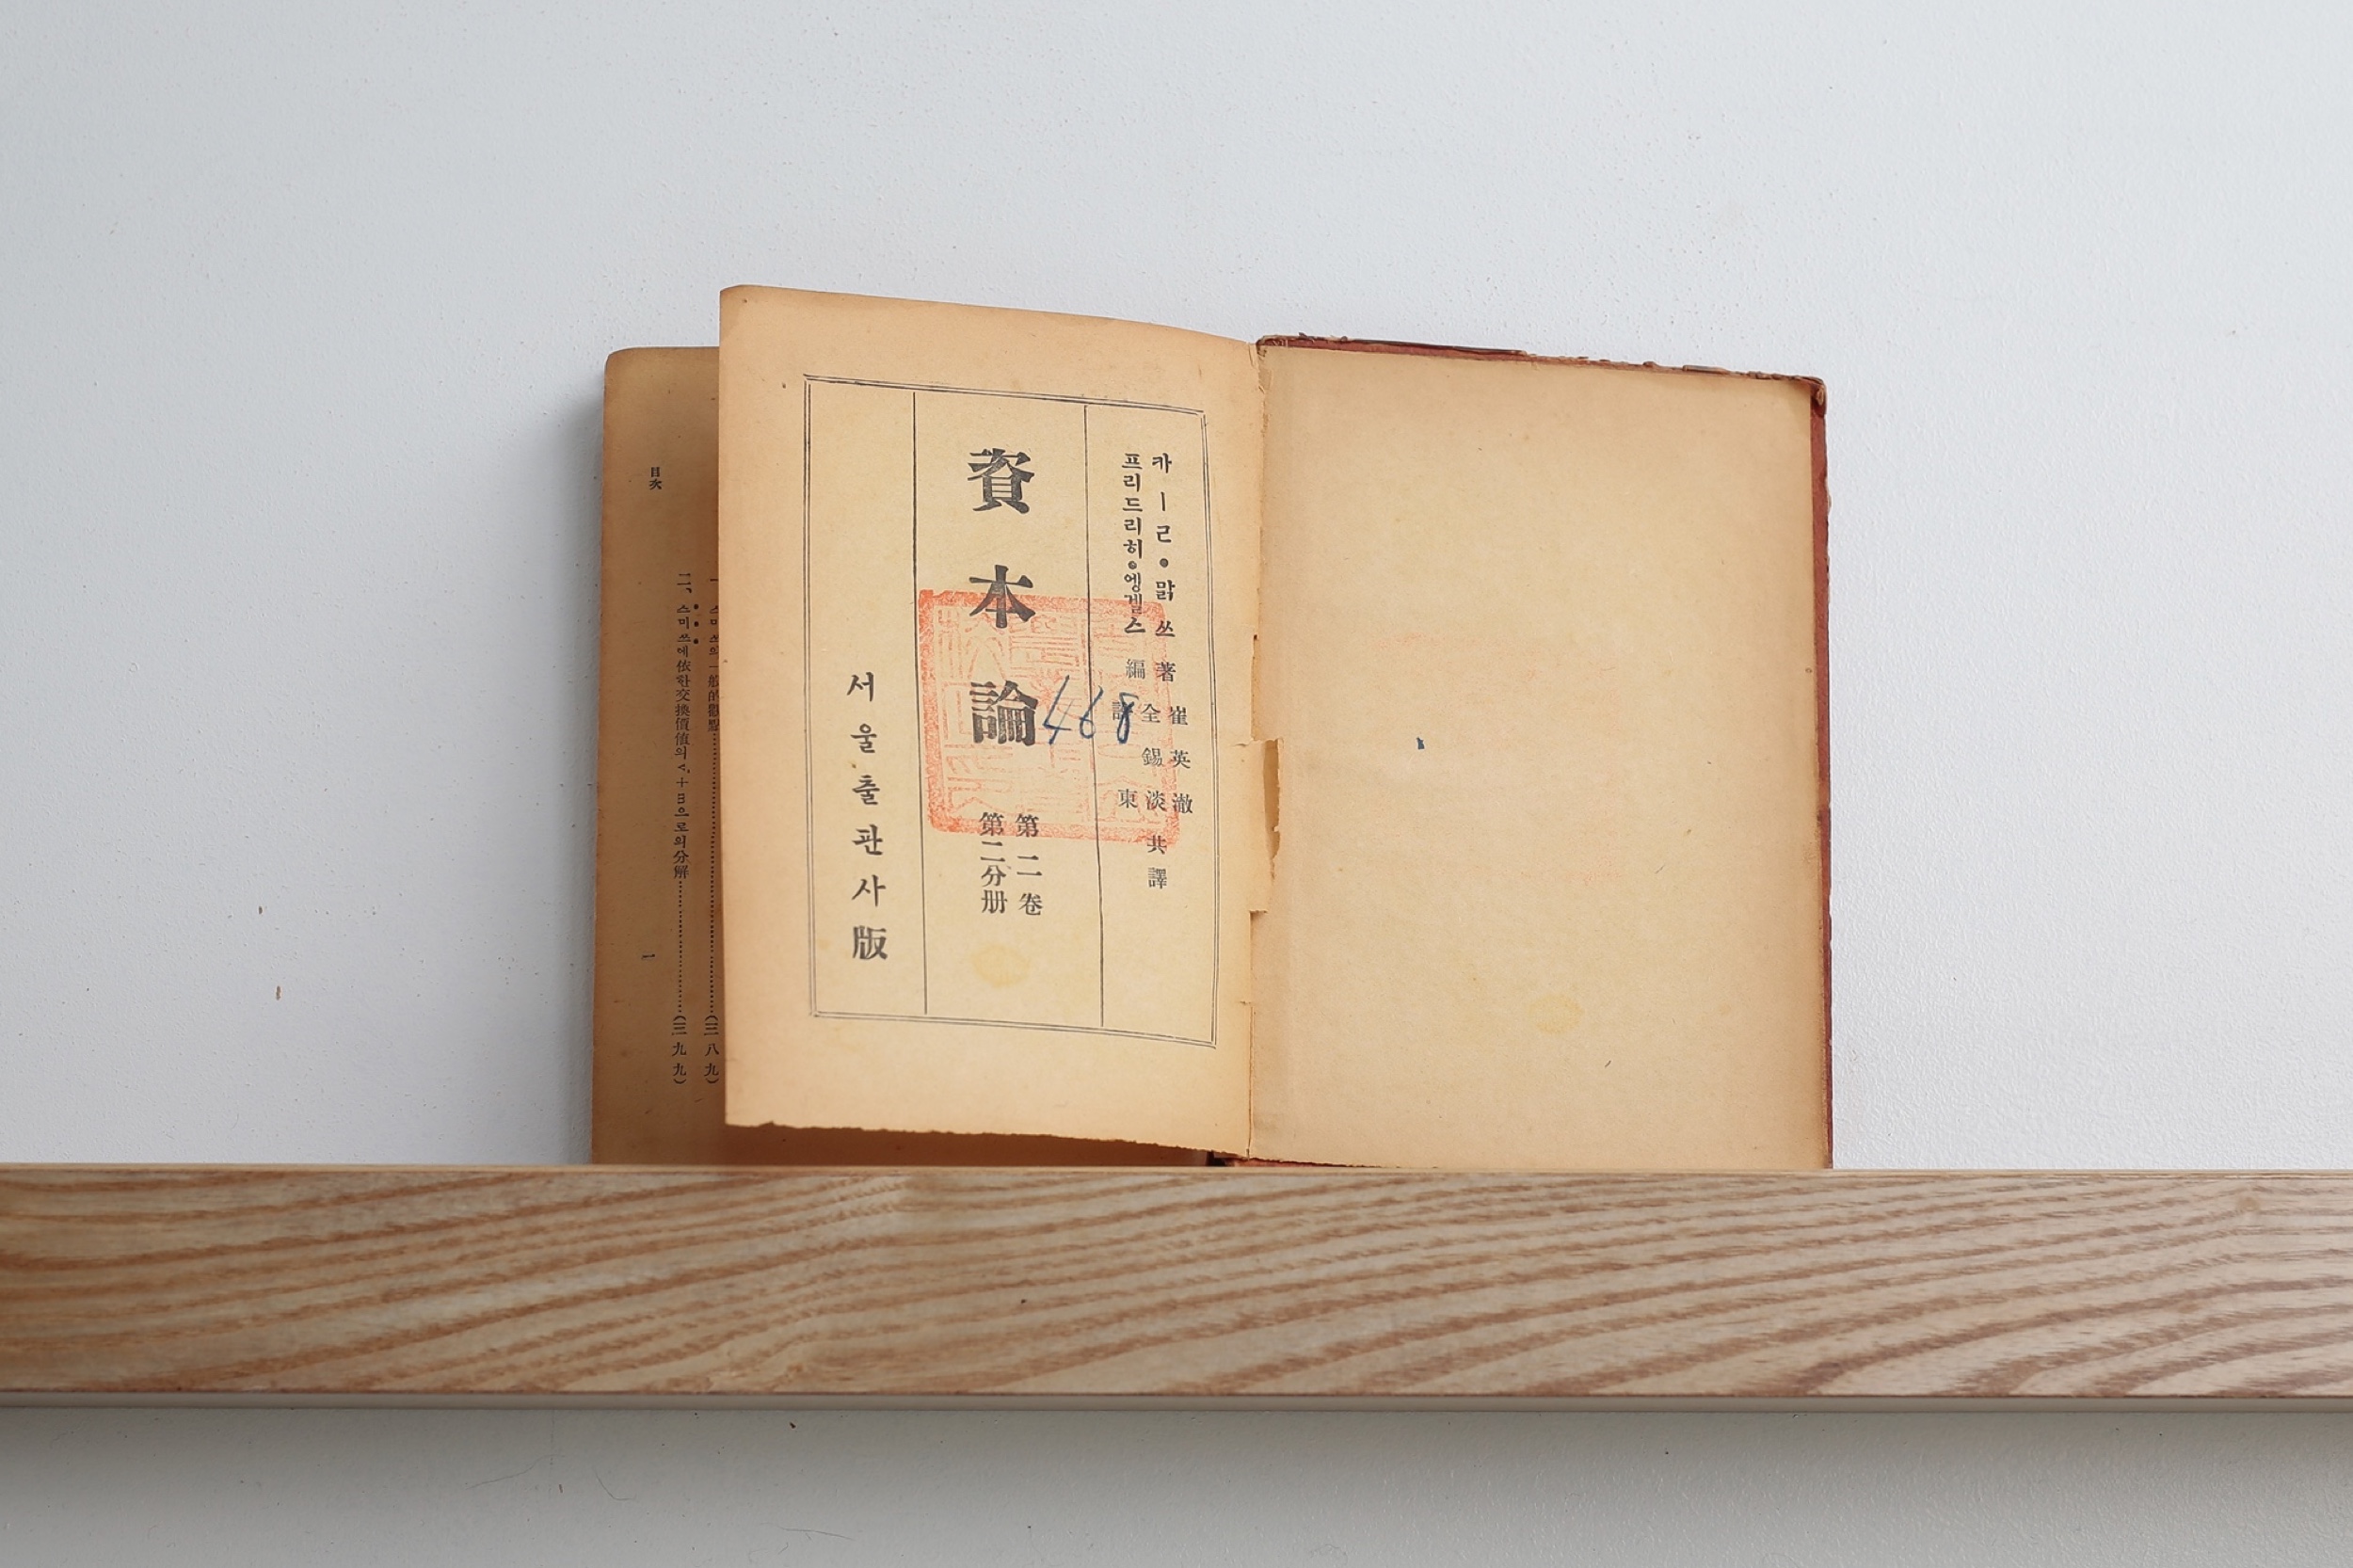 카ー르・맑쓰 著
프리드리히・엥겔스 編
崔英澈
全錫淡
許 東
共譯
資本論
第二卷
第二分册
468
서울출판사版
目次
스미쓰의 一般的觀點……(三八九)
二、스미쓰에依한交換價値의 v+m으로의分解……(三九九)
一